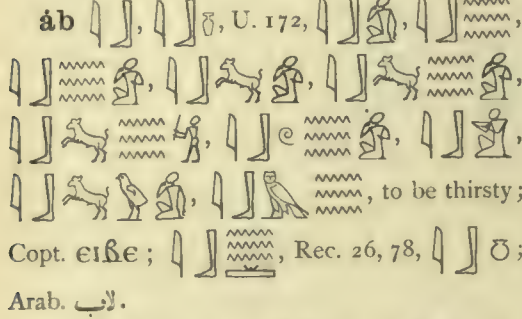 ȧb 𓇋𓃀, 𓇋𓃀𓏊, U. 172, 𓇋𓃀𓀁, 𓇋𓃀𓈗,
𓇋𓃀𓈗𓀁, 𓇋𓃀𓃙𓀁, 𓇋𓃀𓃙𓈗𓀁,
𓇋𓃀𓃙𓈗𓀜, 𓇋𓃀𓏲𓈗𓀁, 𓇋𓃀,
𓇋𓃀𓃙𓅱𓀁, 𓇋𓃀𓅓𓈗, to be thirsty;
Copt. ⲉⲓⲃⲉ; 𓇋𓃀𓈗, Rec. 26, 78, 𓇋𓃀𓏌;
Arab. لاب.